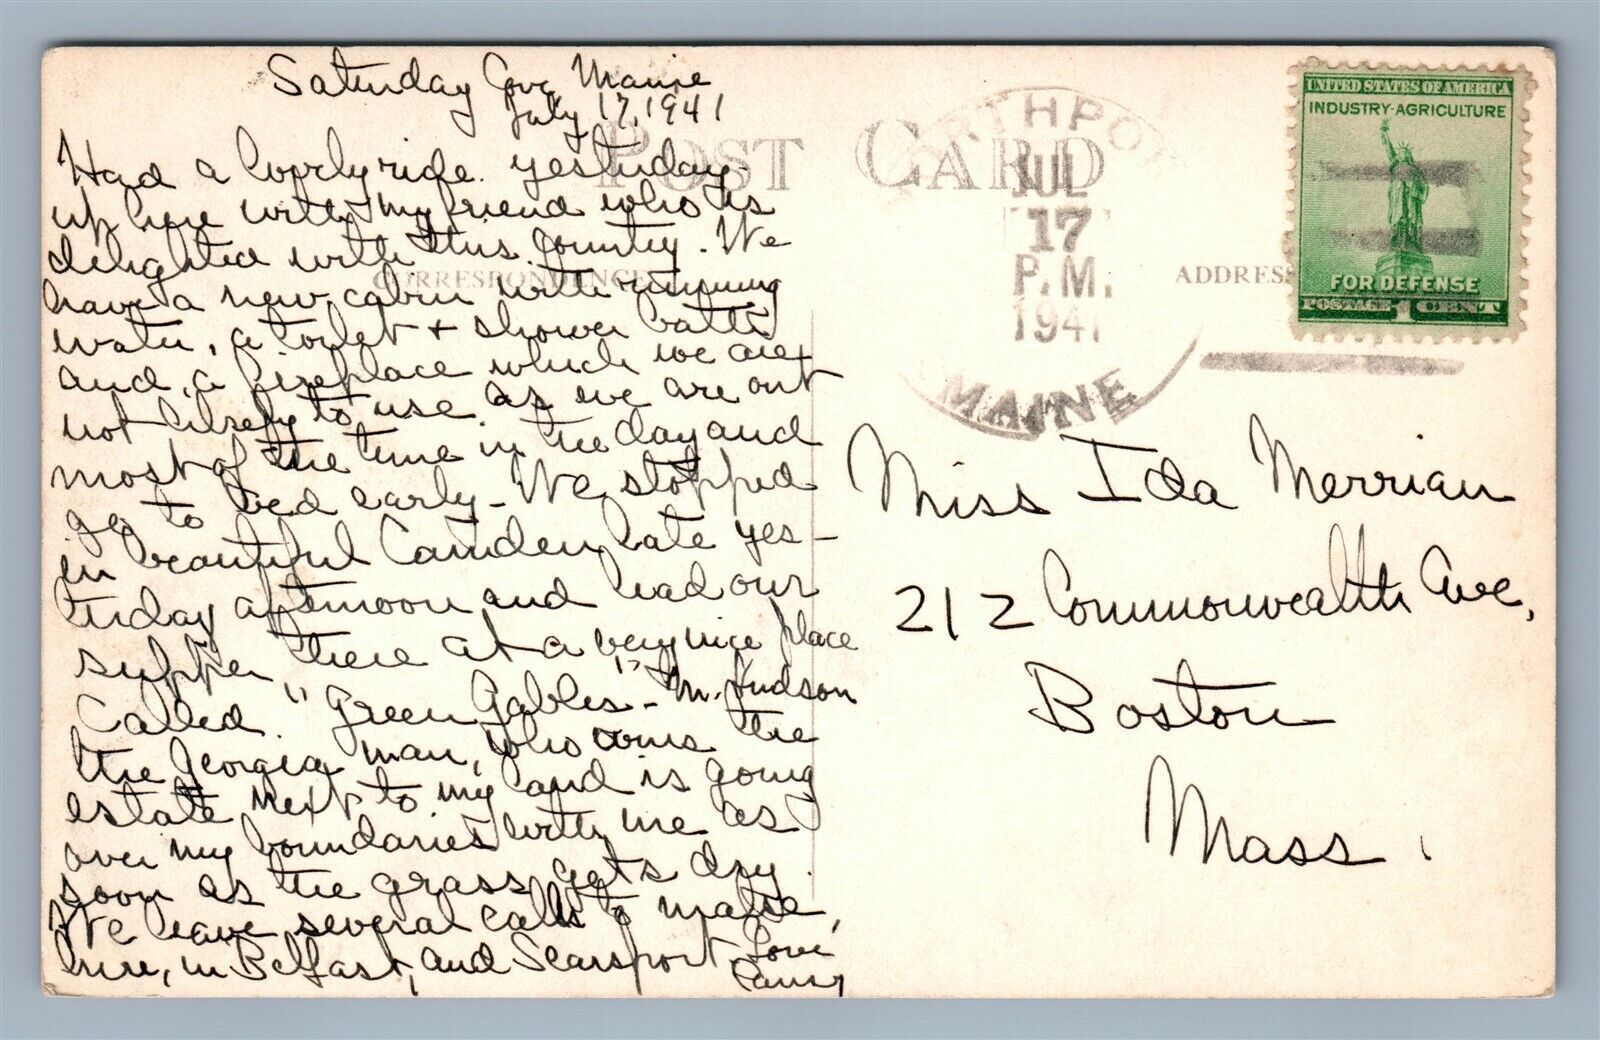 Saturday Cove Maine
July 17, 1941
Had a lovely ride yesterday
up here with my friend who is
delighted with this country. We
have a new cabin with running
water, a toilet + shower bath
and a fireplace which we are
not likely to use as we are out
most of the time in the day and
go to bed early - We stopped
in beautiful Camden late yes-
terday afternoon and had our
supper there at a very nice place
called "Green Gables" - Mr. Hudson
the Georgia man, who owns the
estate next to my land is going
over my boundaries with me as
soon as the grass gets dry.
We have several calls to make,
here, in Belfast, and Searsport. Love
POST CARD
CORRESPONDENCE
ADDRESS
NORTHPORT
JUL
17
P.M.
1941
MAINE
UNITED STATES OF AMERICA
INDUSTRY-AGRICULTURE
FOR DEFENSE
POSTAGE 1 CENT
Miss Ida Merriam
212 Commonwealth Ave,
Boston
Mass.